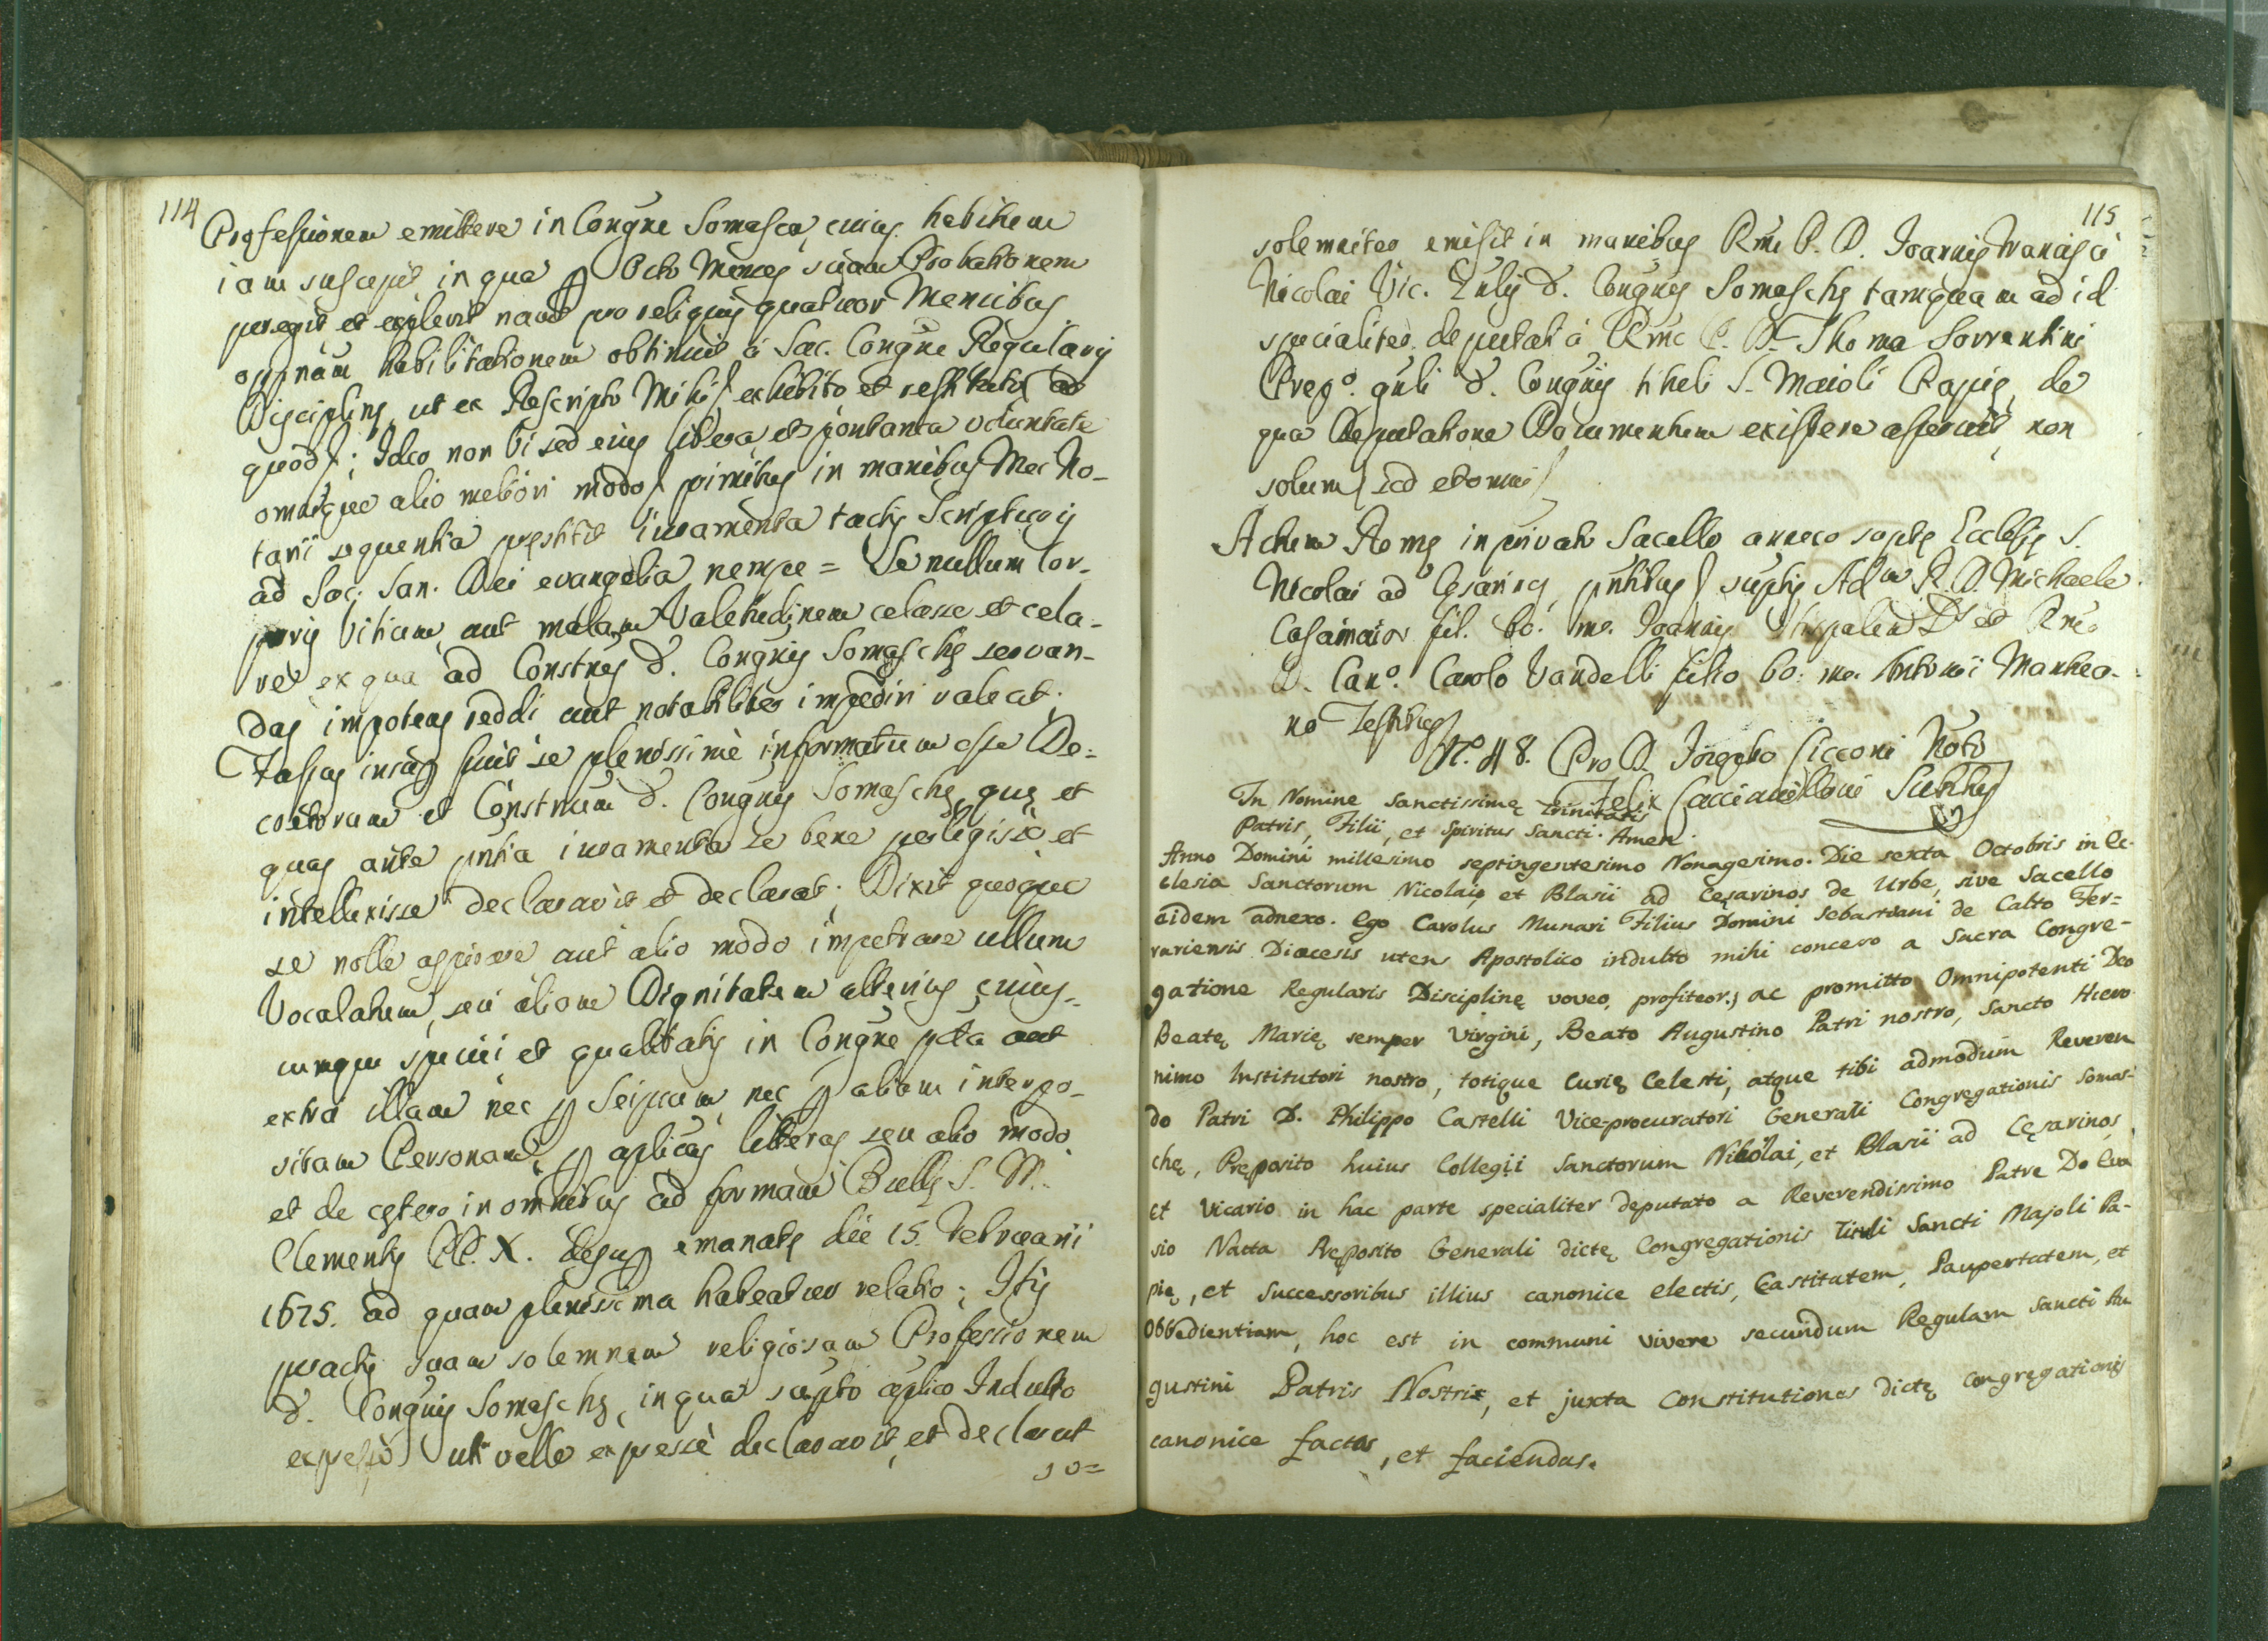 114
Professionem emittere in Congñe Somasca, cuius habitum
iam suscepit in qua p Octo Menses suam Probationem
peregit et explevit nam pro reliquis quatuor Mensibus
oppnam habilitationem obtinuit à Sac. Congne Regularis
Discipline, ut ex Rescripto Mihi exhibito et restituto
quod; Ideo non vi sed eius libera et spontanea voluntate
omnique alio meliori modo primitus in manibus Mei No-
tarii sequentia prestitit iuramenta tactis Scripturis
ad Sac: San. Dei evangelia nempe = Se nullum Cor-
poris Vitium aut malam Valetudinem celasse et cela-
re ex qua ad Constnes d. Congnis Somasche servan-
das impotens reddi aut notabiliter impediri valeat;
Fassus insup fuit se plenissimè informatum esse De-
cretorum et Constnum d. Congnis Somasche que et
quas ante pntia iuramenta se bene perlegisse et
intellexisse declaravit et declarat; Dixit quoque
se nolle aspirare aut alio modo impetrare ullum
Vocalatum, seu aliam Dignitatem alterius cuius-
cumque speciei et qualitatis in Congne pcta aut
extra illam nec p Seipsum nec p aliam interpo-
sitam Personam, p aplicas litteras seu alio modo
et de cetero in omnibus ad formam Bulle S. M.
Clementis PP. X. desup emanate die 15. Februarii
1675. ad quam plenissima habeatur relatio; Itis
peractis suam solemnem religiosam Professionem
d. Congnis Somasche, in qua supto aplico Indulto
expresso uti velle expressè declaravit, et declarat
so=
115
solemniter emisit in manibus Rmi P. D. Joannis Francisci
Nicolai Vic. Gulis d. Congnis Somasche tamquam ad id
specialiter deputati à Rmo P. D. Thoma Sorrentini
Prepo. gnli d. Congnis tituli S. Maioli Papie, de
qua Deputatione Documentum existere asseruit, non
solum sed et omni
Actum Rome in privato Sacello annexo supte Ecclesie S.
Nicolai ad Cesarinos, pntibus suptis Adm R. D. Michaele
Casamaior fil. bo. me. Joannis Hispalen Ds et Rmo
D. Cano. Carolo Vandelli filio bo: me. Antonii Mantea-
no Testibus
N. 48. Pro D. Josepho Cicconi Noto
Felix Saccianelloni Subttus
In Nomine Sanctissimę Trinitatis
Patris, Filii, et Spiritus Sancti. Amen.
Anno Domini millesimo septingentesimo Nonagesimo. Die sexta Octobris in Ec-
clesia Sanctorum Nicolai, et Blasii ad Cęsarinos de Urbe, sive Sacello
eidem adnexo. Ego Carolus Munari Filius Domini Sebastiani de Calto Fer=
rariensis Diœcesis utens Apostolico indulto mihi concesso a Sacra Congre-
gatione Regularis Disciplinę voveo, profiteor, ac promitto Omnipotenti Deo
Beatę Marię semper Virgini, Beato Augustino Patri nostro, Sancto Hiero-
nimo Institutori nostro, totique Curię Celesti, atque tibi admodum Reveren
do Patri D. Philippo Castelli Vice-procuratori Generali Congregationis Somas-
chę, Pręposito huius Collegii Sanctorum Nikolai, et Blasii ad Cęsarinos,
et Vicario in hac parte specialiter deputato a Reverendissimo Patre Do Eva
sio Natta Pręposito Generali dictę Congregationis Tituli Sancti Majoli Pa-
pię, et Successoribus illius canonice electis, Castitatem, Paupertatem, et
Obbedientiam, hoc est in communi vivere secundum Regulam Sancti Au
gustini Patris Nostri, et juxta Constitutiones dictę Congregationis
canonice factas, et faciendas.